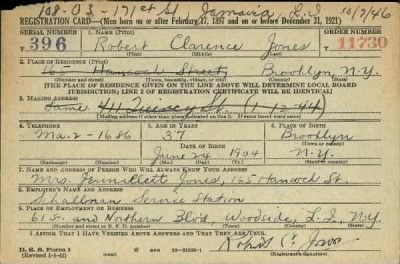 108-03-171st St Jamaica L.I. 10/7/46
REGISTRATION CARD—(Men born on or after February 17, 1897 and on or before December 31, 1921)
SERIAL NUMBER 1. NAME (Print) ORDER NUMBER
T 396 Robert Clarence Jones 11730
(First) (Middle) (Last)
2. PLACE OF RESIDENCE (Print)
165 Hancock Street Brooklyn, N.Y.
(Number and street) (Town, township, village, or city) (County) (State)
[THE PLACE OF RESIDENCE GIVEN ON THE LINE ABOVE WILL DETERMINE LOCAL BOARD
JURISDICTION; LINE 2 OF REGISTRATION CERTIFICATE WILL BE IDENTICAL]
3. MAILING ADDRESS
Same 411 Quincy St. (1-12-44)
[Mailing address if other than place indicated on line 2. If same insert word same]
4. TELEPHONE 5. AGE IN YEARS 6. PLACE OF BIRTH
Ma. 2-1686 37 Brooklyn
DATE OF BIRTH (Town or county)
June 24 1904 N.Y.
(Exchange) (Number) (Mo.) (Day) (Yr.) (State or country)
7. NAME AND ADDRESS OF PERSON WHO WILL ALWAYS KNOW YOUR ADDRESS
Mrs. Jones, 165 Hancock St.
8. EMPLOYER'S NAME AND ADDRESS
Service Station
9. PLACE OF EMPLOYMENT OR BUSINESS
61 St. and Northern Blvd, Woodside, L.I., N.Y.
(Number and street or R. F. D. number) (Town) (County) (State)
I AFFIRM THAT I HAVE VERIFIED ABOVE ANSWERS AND THAT THEY ARE TRUE.
D. S. S. FORM 1
(Revised 1-1-42) (over) Robert C. Jones